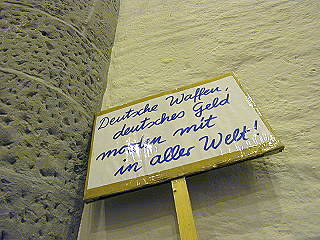 Deutsche Waffen,
deutsches Geld
morden mit
in aller Welt!